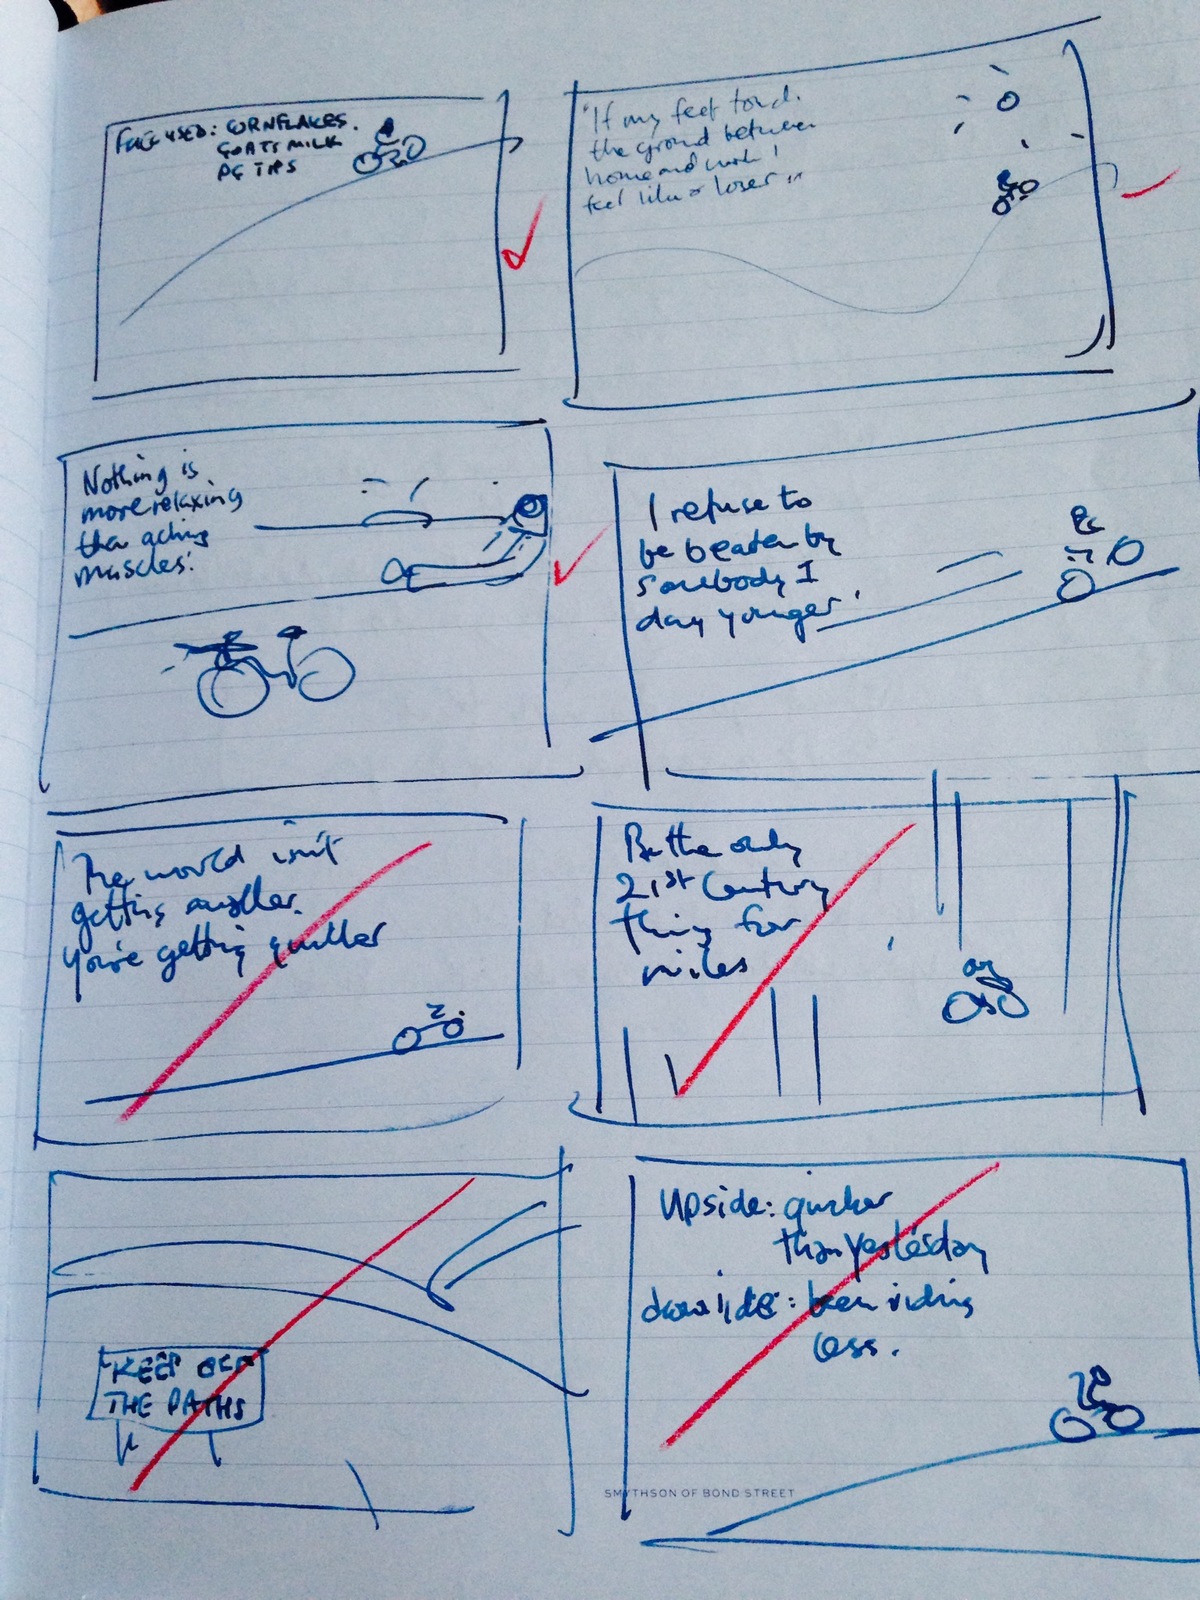 FUEL USED: CORNFLAKES.
GOATS MILK
PG TIPS
"If my feet touch
the ground between
home and work I
feel like a loser"
Nothing is
more relaxing
than aching
muscles.
I refuse to
be beaten by
somebody 1
day younger.
The world isn't
getting smaller.
you're getting quicker
Be the only
21st Century
thing for
miles
KEEP OFF
THE PATHS
Upside: quicker
than yesterday
downside: been riding
less.
SMYTHSON OF BOND STREET